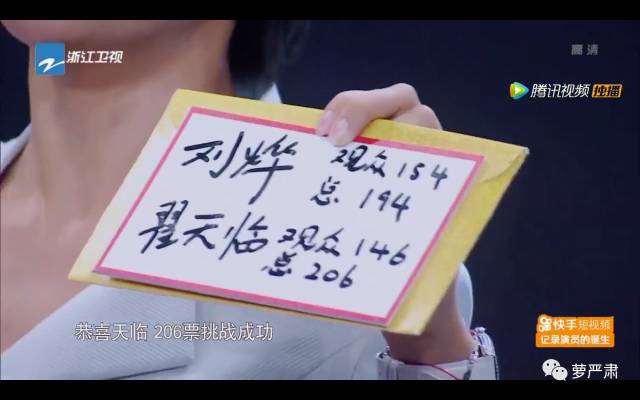 浙江卫视
高清
腾讯视频 独播
刘烨 观众 154
总 194
翟天临 观众 146
总 206
恭喜天临 206票挑战成功
快手短视频
记录演员的诞生
萝严肃